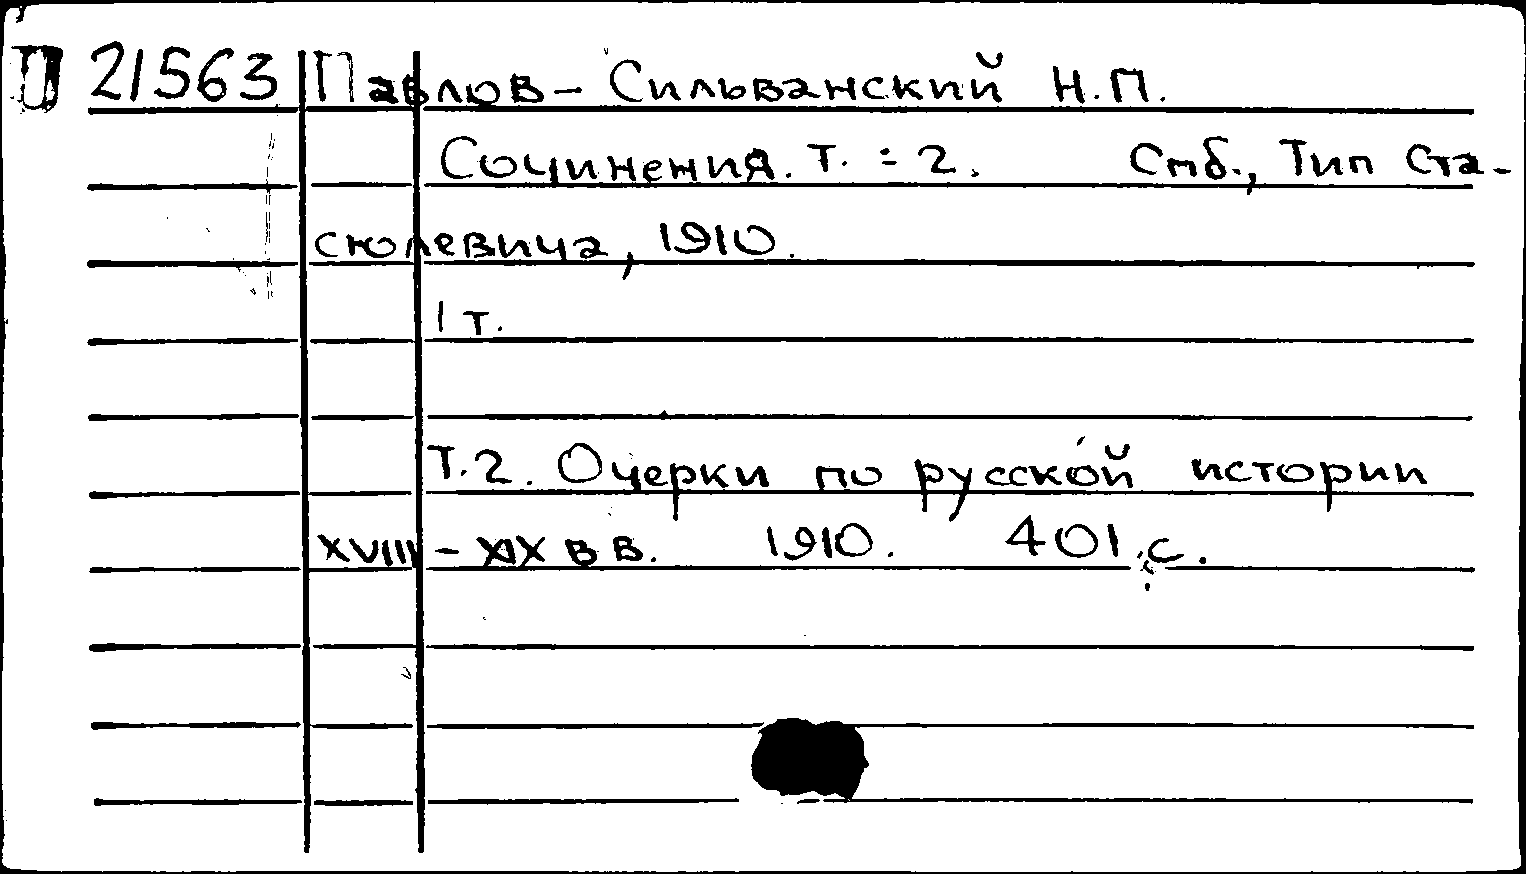 П 21563 Павлов - Сильванский Н.П.
Сочинения. Т. - 2. Спб., Тип Ста-
сюлевича, 1910.
1 т.
Т.2. Очерки по русской истории
XVIII - XIX вв. 1910. 401 с.